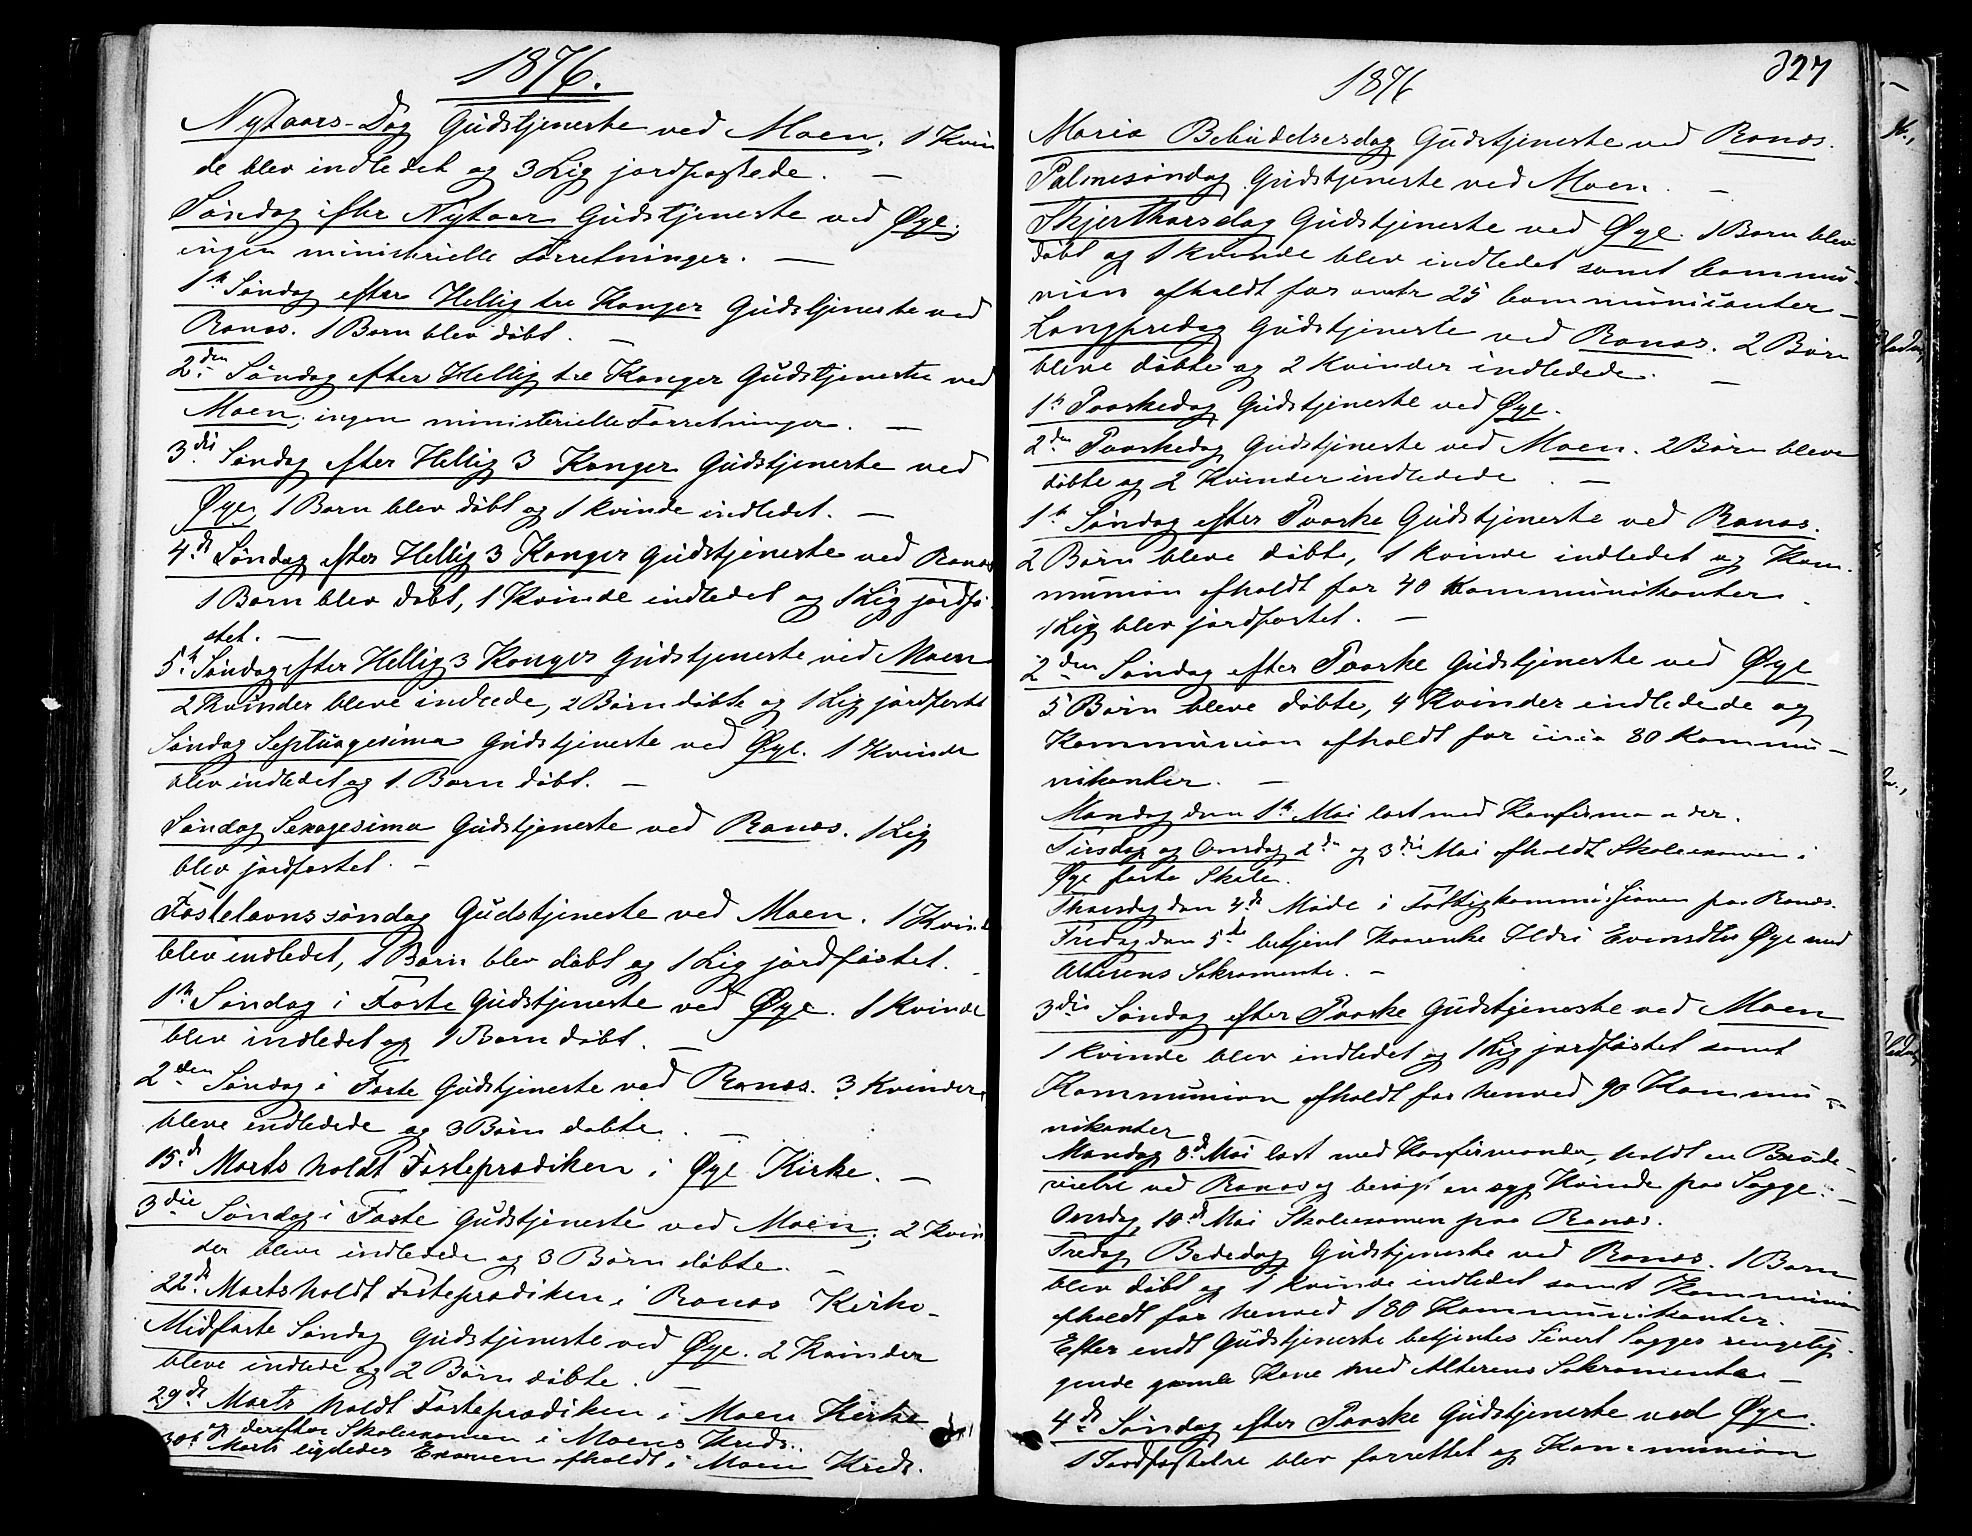 1876.
Nytaars-Dag Gudstjeneste ved Moen. 1 Kvin
de blev indledet og 3 Lig jordfæstede. —
Søndag efter Nytaar Gudstjeneste ved Øye;
ingen ministerielle Forretninger. —
1ste Søndag efter Hellig tre Konger Gudstjeneste ved
Ranæs. 1 Barn blev døbt. —
2den Søndag efter Hellig tre Konger Gudstjeneste ved
Moen, ingen ministerielle Forretninger. —
3die Søndag efter Hellig 3 Konger Gudstjeneste ved
Øye, 1 Barn blev døbt og 1 Kvinde indledet. —
4de Søndag efter Hellig 3 Konger Gudstjeneste ved Ranæs
1 Barn blev døbt, 1 Kvinde indledet og 1 Lig jordfæ
stet. —
5te Søndag efter Hellig 3 Konger Gudstjeneste ved Moen
2 Kvinder bleve indledede, 2 Børn døbte og 1 Lig jordfæstet
Søndag Septuagesima Gudstjeneste ved Øye. 1 Kvinde
blev indledet og 1 Barn døbt. —
Søndag Sexagesima Gudstjeneste ved Ranæs. 1 Lig
blev jordfæstet. —
Fastelavnssøndag Gudstjeneste ved Moen. 1 Kvinde
blev indledet, 1 Barn blev døbt og 1 Lig jordfæstet. —
1ste Søndag i Faste Gudstjeneste ved Øye. 1 Kvinde
blev indledet og 1 Barn døbt. —
2den Søndag i Faste Gudstjeneste ved Ranæs. 3 Kvinder
bleve indledede og 3 Børn døbte. —
15de Marts holdt Fasteprædiken i Øye Kirke. —
3die Søndag i Faste Gudstjeneste ved Moen; 2 Kvin
der bleve indledede og 3 Børn døbte. —
22de Marts holdt Fasteprædiken i Ranæs Kirke —
Midfaste Søndag Gudstjeneste ved Øye. 2 Kvinder
bleve indlede og 2 Børn døbte. —
29de Marts holdt Fasteprædiken i Moen Kirke
og derefter Skoleexamen i Moens Kreds.
30te Marts ligeledes Examen afholdt i Moen Kreds.
1876
327
Maria Bebudelsesdag Gudstjeneste ved Ranæs.
Palmesøndag Gudstjeneste ved Moen. —
Skjærthorsdag Gudstjeneste ved Øye. 1 Barn blev
døbt og 1 Kvinde blev indledet samt Commu-
nion afholdt for omtr 25 Communicanter —
Langfredag Gudstjeneste ved Ranæs. 2 Børn
bleve døbte og 2 Kvinder indledede. —
1ste Paaskedag Gudstjeneste ved Øye.
2den Paaskedag Gudstjeneste ved Moen. 2 Børn bleve
døbte og 2 Kvinder indledede. —
1ste Søndag efter Paaske Gudstjeneste ved Ranæs.
2 Børn bleve døbte, 1 Kvinde indledet og Kom-
munion afholdt for 40 Kommunikanter.
1 Lig blev jordfæstet. —
2den Søndag efter Paaske Gudstjeneste ved Øye
5 Børn bleve døbte, 4 Kvinder indledede og
Kommunion afholdt for circa 80 Kommu-
nikanter. —
Mandag den 1ste Mai læst med Konfirmander.
Tirsdag og Onsdag 2den og 3die Mai afholdt Skoleexamen i
Øye faste Skole.
Thorsdag den 4de Møde i Fattigkommissionen paa Ranæs.
Fredag den 5te betjent Ildri Evensdtr Øye med
Alterens Sakramente. —
3die Søndag efter Paaske Gudstjeneste ved Moen
1 Kvinde blev indledet og 1 Lig jordfæstet samt
Kommunion afholdt for henved 90 Kommu-
nikanter
Mandag 8de Mai læst med Konfirmander, holdt en Brude-
vielse ved Ranæs og besøgt en syg Kvinde paa Sogge. —
Onsdag 10de Mai Skoleexamen paa Ranæs.
Fredag Bededag Gudstjeneste ved Ranæs. 1 Barn
blev døbt og 1 Kvinde indledet samt Kommunion
afholdt for henved 180 Kommunikanter.
Efter endt Gudstjeneste betjentes Sivert Sogges sengelig-
gende gamle Kone med Alterens Sakramente —
4de Søndag efter Paaske Gudstjeneste ved Øye.
1 Jordfæstelse blev forrettet og Kommunion